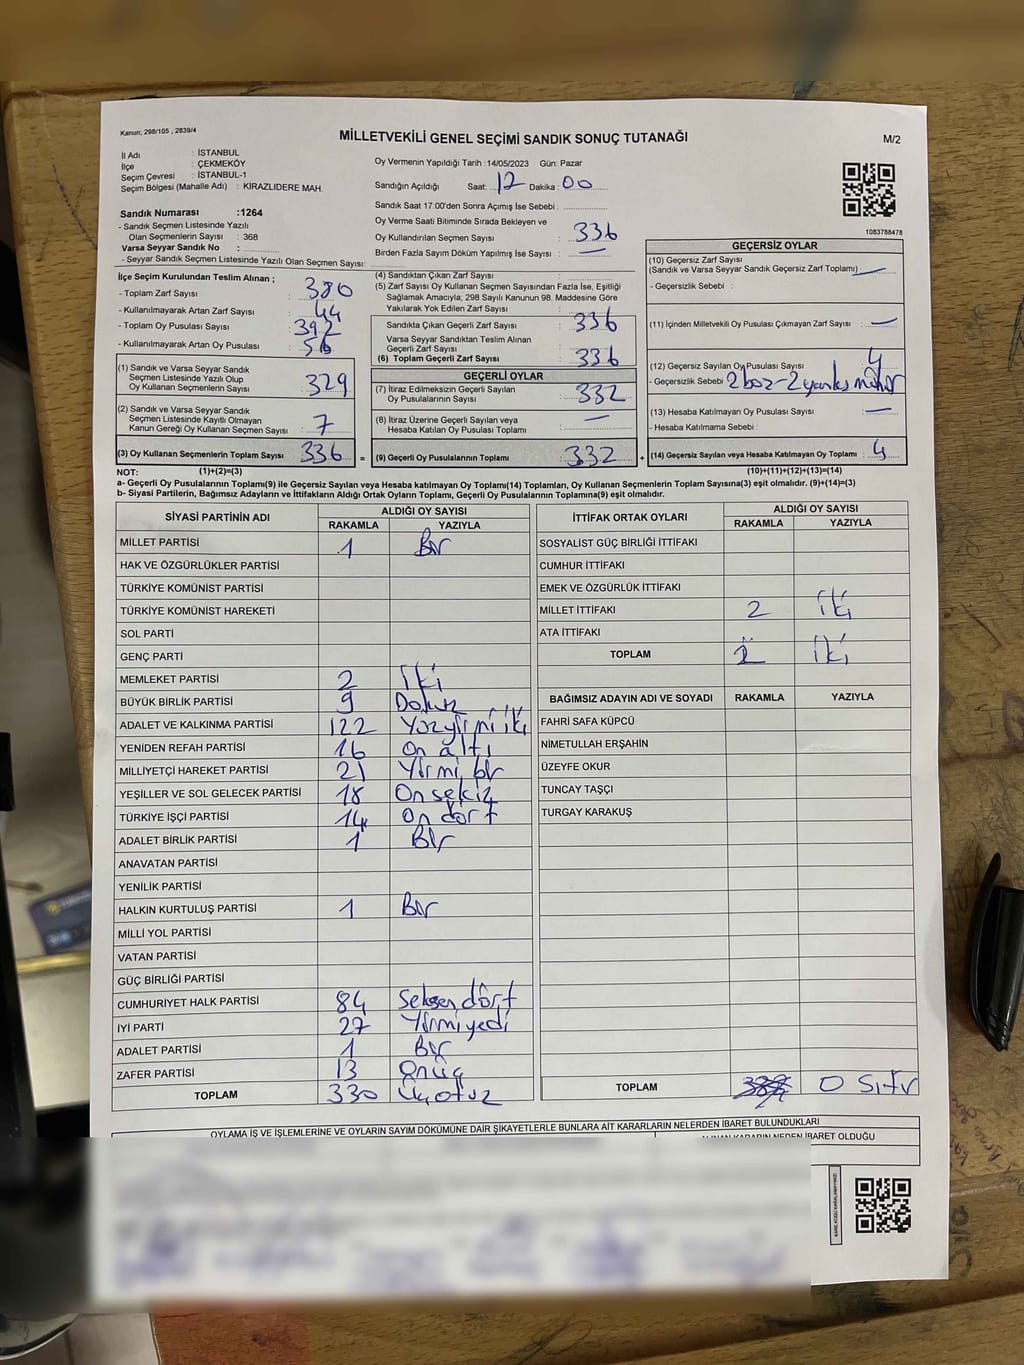 Kanun; 298/105 , 2839/4
MİLLETVEKİLİ GENEL SEÇİMİ SANDIK SONUÇ TUTANAĞI
M/2
İl Adı : İSTANBUL
İlçe : ÇEKMEKÖY
Seçim Çevresi : İSTANBUL-1
Seçim Bölgesi (Mahalle Adı) : KİRAZLIDERE MAH.
Sandık Numarası :1264
- Sandık Seçmen Listesinde Yazılı
Olan Seçmenlerin Sayısı : 368
Varsa Seyyar Sandık No :
- Seyyar Sandık Seçmen Listesinde Yazılı Olan Seçmen Sayısı:
Oy Vermenin Yapıldığı Tarih :14/05/2023 Gün: Pazar
Sandığın Açıldığı Saat: 12 Dakika : 00
Sandık Saat 17:00'den Sonra Açımış İse Sebebi :
Oy Verme Saati Bitiminde Sırada Bekleyen ve
Oy Kullandırılan Seçmen Sayısı : 336
Birden Fazla Sayım Döküm Yapılmış İse Sayısı : —
1083788478
İlçe Seçim Kurulundan Teslim Alınan ;
- Toplam Zarf Sayısı : 380
- Kullanılmayarak Artan Zarf Sayısı : 44
- Toplam Oy Pusulası Sayısı : 392
- Kullanılmayarak Artan Oy Pusulası : 56
(1) Sandık ve Varsa Seyyar Sandık
Seçmen Listesinde Yazılı Olup
Oy Kullanan Seçmenlerin Sayısı : 329
(2) Sandık ve Varsa Seyyar Sandık
Seçmen Listesinde Kayıtlı Olmayan
Kanun Gereği Oy Kullanan Seçmen Sayısı : 7
(3) Oy Kullanan Seçmenlerin Toplam Sayısı : 336 =
(4) Sandıktan Çıkan Zarf Sayısı :
(5) Zarf Sayısı Oy Kullanan Seçmen Sayısından Fazla İse, Eşitliği
Sağlamak Amacıyla; 298 Sayılı Kanunun 98. Maddesine Göre
Yakılarak Yok Edilen Zarf Sayısı :
Sandıkta Çıkan Geçerli Zarf Sayısı : 336
Varsa Seyyar Sandıktan Teslim Alınan
Geçerli Zarf Sayısı :
(6) Toplam Geçerli Zarf Sayısı : 336
GEÇERLİ OYLAR
(7) İtiraz Edilmeksizin Geçerli Sayılan
Oy Pusulalarının Sayısı : 332
(8) İtiraz Üzerine Geçerli Sayılan veya
Hesaba Katılan Oy Pusulası Toplamı : —
(9) Geçerli Oy Pusulalarının Toplamı : 332 +
GEÇERSİZ OYLAR
(10) Geçersiz Zarf Sayısı
(Sandık ve Varsa Seyyar Sandık Geçersiz Zarf Toplamı) : —
- Geçersizlik Sebebi :
(11) İçinden Milletvekili Oy Pusulası Çıkmayan Zarf Sayısı : —
(12) Geçersiz Sayılan Oy Pusulası Sayısı : 4
- Geçersizlik Sebebi : 2 boz-2 yanlış mühür
(13) Hesaba Katılmayan Oy Pusulası Sayısı : —
- Hesaba Katılmama Sebebi :
(14) Geçersiz Sayılan veya Hesaba Katılmayan Oy Toplamı : 4
NOT: (1)+(2)=(3) (10)+(11)+(12)+(13)=(14)
a- Geçerli Oy Pusulalarının Toplamı(9) ile Geçersiz Sayılan veya Hesaba katılmayan Oy Toplamı(14) Toplamları, Oy Kullanan Seçmenlerin Toplam Sayısına(3) eşit olmalıdır. (9)+(14)=(3)
b- Siyasi Partilerin, Bağımsız Adayların ve İttifakların Aldığı Ortak Oyların Toplamı, Geçerli Oy Pusulalarının Toplamına(9) eşit olmalıdır.
SİYASİ PARTİNİN ADI ALDIĞI OY SAYISI
RAKAMLA YAZIYLA
MİLLET PARTİSİ 1 Bir
HAK VE ÖZGÜRLÜKLER PARTİSİ
TÜRKİYE KOMÜNİST PARTİSİ
TÜRKİYE KOMÜNİST HAREKETİ
SOL PARTİ
GENÇ PARTİ
MEMLEKET PARTİSİ 2 İki
BÜYÜK BİRLİK PARTİSİ 9 Dokuz
ADALET VE KALKINMA PARTİSİ 122 Yüzyirmi iki
YENİDEN REFAH PARTİSİ 16 On altı
MİLLİYETÇİ HAREKET PARTİSİ 21 Yirmi bir
YEŞİLLER VE SOL GELECEK PARTİSİ 18 On sekiz
TÜRKİYE İŞÇİ PARTİSİ 14 On dört
ADALET BİRLİK PARTİSİ 1 Bir
ANAVATAN PARTİSİ
YENİLİK PARTİSİ
HALKIN KURTULUŞ PARTİSİ 1 Bir
MİLLİ YOL PARTİSİ
VATAN PARTİSİ
GÜÇ BİRLİĞİ PARTİSİ
CUMHURİYET HALK PARTİSİ 84 Seksen dört
İYİ PARTİ 27 Yirmi yedi
ADALET PARTİSİ 1 Bir
ZAFER PARTİSİ 13 Onüç
TOPLAM 330 Üçotuz
İTTİFAK ORTAK OYLARI ALDIĞI OY SAYISI
RAKAMLA YAZIYLA
SOSYALİST GÜÇ BİRLİĞİ İTTİFAKI
CUMHUR İTTİFAKI
EMEK VE ÖZGÜRLÜK İTTİFAKI
MİLLET İTTİFAKI 2 İki
ATA İTTİFAKI
TOPLAM 2 İki
BAĞIMSIZ ADAYIN ADI VE SOYADI RAKAMLA YAZIYLA
FAHRİ SAFA KÜPCÜ
NİMETULLAH ERŞAHİN
ÜZEYFE OKUR
TUNCAY TAŞÇI
TURGAY KARAKUŞ
TOPLAM 0 Sıfır
OYLAMA İŞ VE İŞLEMLERİNE VE OYLARIN SAYIM DÖKÜMÜNE DAİR ŞİKAYETLERLE BUNLARA AİT KARARLARIN NELERDEN İBARET BULUNDUKLARI
ALINAN KARARIN NEDEN İBARET OLDUĞU